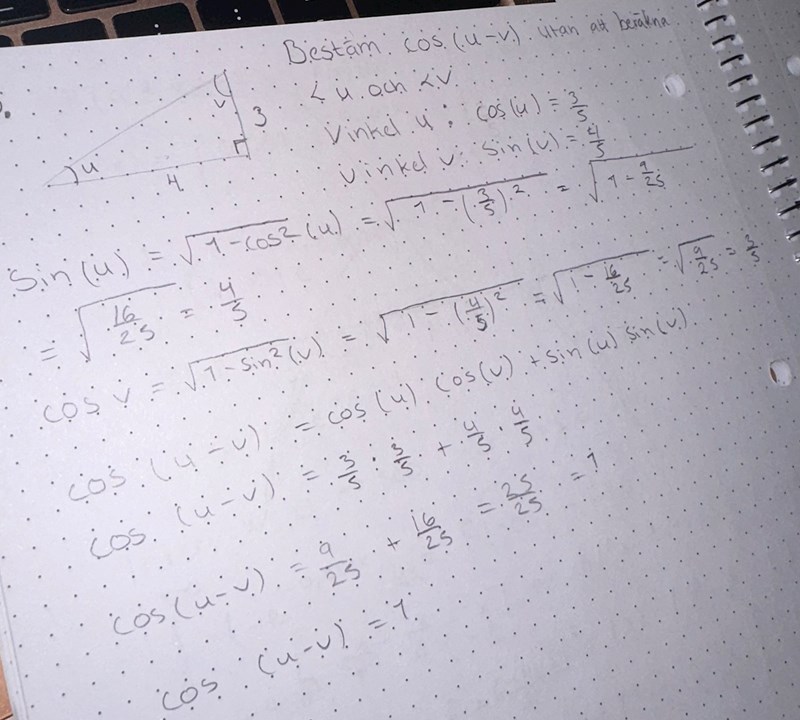 Bestäm cos(u-v) utan att beräkna
<u och <v
Vinkel u: cos(u) = 3/5
Vinkel v: sin(v) = 4/5
v
3
u
4
sin(u) = √(1-cos²(u)) = √(1-(3/5)²) = √(1-9/25)
= √(16/25) = 4/5
cos v = √(1-sin²(v)) = √(1-(4/5)²) = √(1-16/25) = √(9/25) = 3/5
cos (u-v) = cos(u) cos(v) + sin(u) sin(v)
cos (u-v) = 3/5 · 3/5 + 4/5 · 4/5
cos(u-v) = 9/25 + 16/25 = 25/25 = 1
cos (u-v) = 1